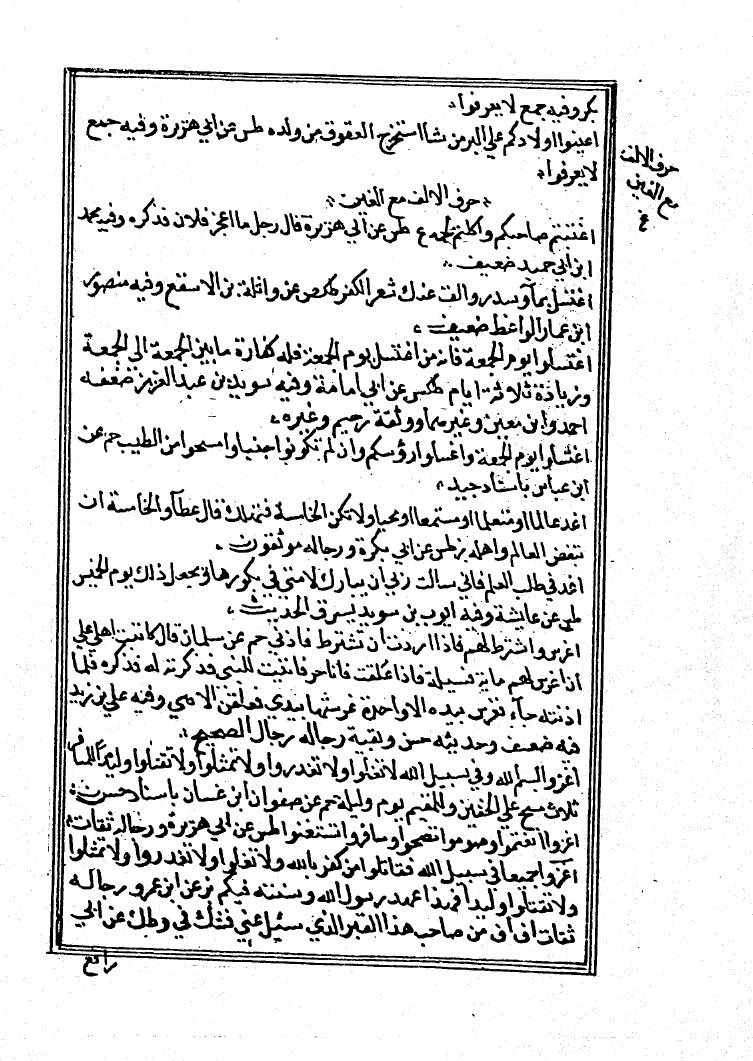 بكر وفيه جمع لا يعرفوا
اعينوا اولادكم علي البر من شا استخرج العقوق من ولده طس عن ابي هريرة وفيه جمع
لا يعرفوا
حرف الالف مع الغين
حرف الالف
مع الغين
ع
اغتبتم صاحبكم واكلتم لحمه ع طس عن ابي هريرة قال رجل ما اعجز فلان فذكره وفيه محمد
ابن ابي حميد ضعيف
اغتسل بمآء وسدر والق عنك شعر الكفر طكص عن واثلة بن الاسقع وفيه منصور
ابن عمار الواعظ ضعيف
اغتسلوا يوم الجمعة فانه من اغتسل يوم الجمعة فله كفارة ما بين الجمعة الى الجمعة
وزيادة ثلاثة ايام طكس عن ابي امامة وفيه سويد بن عبد العزيز ضعفه
احمد وابن معين وغيرهما ووثقه دحيم وغيره
اغتسلوا يوم الجمعة واغسلوا رؤسكم وان لم تكونوا جنبا وامسحوا من الطيب حم عن
ابن عباس باسناد جيد
اغد عالما او متعلما او مستمعا او محبا ولا تكن الخامسة فتهلك قال عطآء والخامسة ان
تبغض العالم واهله بز طس عن ابي بكرة ورجاله موثقون
اغد في طلب العلم فاني سالت ربي ان يبارك لامتي في بكورها ويجعل ذلك يوم الخميس
طس عن عايشة وفيه ايوب بن سويد يسرق الحديث
اغرس واشترط لهم فاذا اردت ان تشترط فاذني حم عن سلمان قال كاتبت اهلي علي
ان اغرس لهم ماية فسيلة فاذا علقت فانا حر فاتيت للنبي فذكرته له فذكره فلما
اذنته جآء يغرس بيده الا واحدة غرستها بيدي فعلقن الا هي وفيه علي بن زيد
فيه ضعيف وحديثه حسن وبقية رجاله رجال الصحيح
اغزوا بسم الله وفي سبيل الله لا تغلوا ولا تغدروا ولا تمثلوا ولا تقتلوا وليدا للمسافر
ثلاث مسح علي الخفين وللمقيم يوم وليلة حم عن صفوان ابن غسان باسناد حسن
اغزوا تغنموا وصوموا تصحوا وسافروا تستغنوا طس عن ابي هريرة ورجاله ثقات
اغزوا جميعا في سبيل الله فقاتلوا من كفر بالله ولا تغلوا ولا تغدروا ولا تمثلوا
ولا تقتلوا وليدا فهذا عهد رسول الله وسنته فيكم بز عن ابن عمرو رجاله
ثقات اف اف من صاحب هذا القبر الذي سئل عني فشك في وطبك عن ابي
رافع